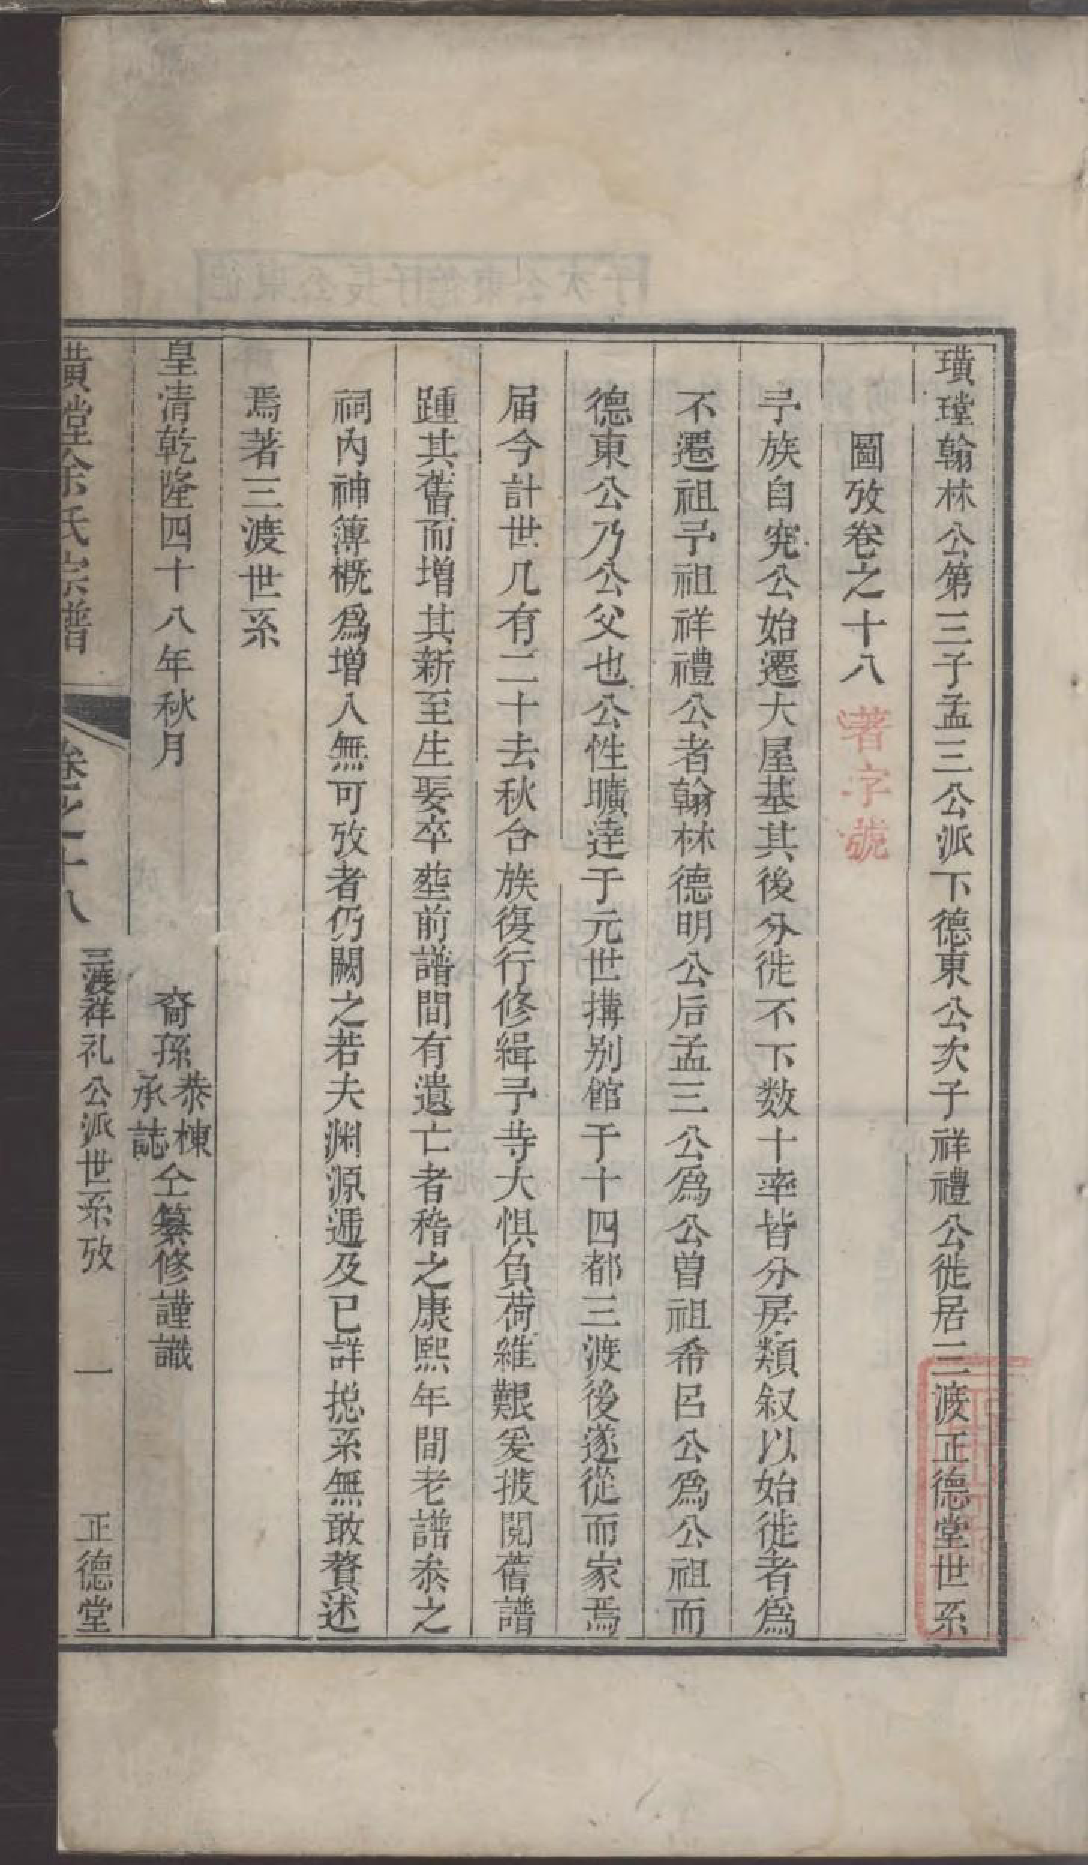 璜瑝翰林公第三子孟三公派下德東公次子祥禮公徙居三渡正德堂世系
圖攷卷之十八
著字號
予族自完公始遷大屋基其後分徙不下数十率皆分房類叙以始徙者爲
不遷祖予祖祥禮公者翰林德明公后孟三公爲公曽祖希吕公爲公祖而
德東公乃公父也公性曠逹于元世搆别館于十四都三渡後遂從而家焉
届今計世凡有二十去秋合族復行修緝予䓁大惧負荷維艱爰披閱舊譜
踵其舊而增其新至生娶卒塟前譜間有遺亡者稽之康熙年間老譜叅之
祠內神簿概爲增入無可攷者仍闕之若夫渊源遞及已詳揔系無敢贅述
焉著三渡世系
皇清乾隆四十八年秋月
裔孫泰棟承誌仝纂修謹識
璜瑝余氏宗譜
卷之十八
三渡祥礼公派世系攷
一
正德堂